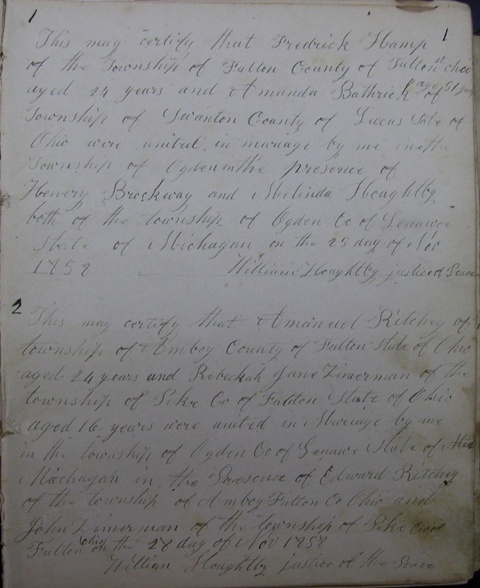 1 1
This may certify that Fredrick Hamp
of the Township of Fulton County of Fulton
aged 24 years and Amanda Bathrick of
Township of Swanton County of Lucas State of
Ohio were united in mariage by me in the
Township of Ogden in the presence of
Henery Brockway and Melinda Houghlby
both of the township of Ogden Co of Lenawee
State of Michagan on the 25 day of Nov
1858 William Houghlby justice of Peace
2 This may certify that Amanuel Ritchey of
township of Amboy County of Fulton State of Ohio
aged 24 years and Rebeckah Jane Zimerman of the
township of Pike Co of Fulton State of Ohio
aged 16 years were united in Mariage by me
in the township of Ogden Co of Lenawe State of
Machagan in the Presence of Edward Ritchey
of the township of Amboy Fulton Co Ohio and
John Zimerman of the township of Pike Co of
Fulton Ohio on the 28 day of Nov 1858
William Houghlby justice of the Peace